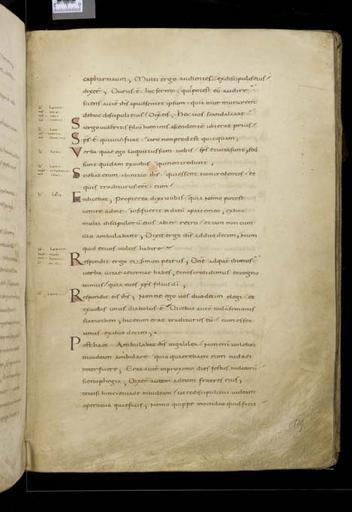 capharnaum; Multi ergo audientes ex discipulis eius
dixer; Durus e hic sermo quis potest eu audire
Sciens aute ihs apud semet ipsum quia murmurarent
de hoc discipuli eius Dixit eis; Hoc vos scandalizat
Si ergo videritis filiu hominis ascendente ubi erat prius
Sps e qui vivificat caro non prodest quicquam
Verba quae ego locutus sum vobis sps et vita sunt sed
sunt quidam ex vobis qui non credunt
Sciebat enim ab initio ihs qui essent non credentes et
quis traditurus eet eum
Et dicebat; Propterea dixi vobis quia nemo potest
venire ad me nisi fuerit ei datu a patre meo, ex hoc
multi discipuloru eius abier retro et iam non cum
illo ambulabant; Dixit ergo ihs ad duodecim; Num
quid et vos vultis habire
Respondit ergo ei simon petrus; Dne ad que ibimus
verba vitae aeternae habes, et nos credidimus et cogno
vimus quia tu es xps filius di;
Respondit eis ihs; Nonne ego vos duodecim elegi et
ex vobis unus diabolus e Dicebat aute iuda simonis
scariothem, hic enim erat traditurus eu cum esset
unus ex duodecim;
Post haec Ambulabat ihs in galilea Non enim volebat
in iudaeam ambulare quia quaerebant eum iudaei
interficere; Erat aute in proximo dies festus iudaeoru
scenophegia; Dixer autem ad eum fratres eius;
transi hinc et vade in iudaeam ut et discipuli tui videant
opera tua quae facis; Nemo quippe in occulto quid facit